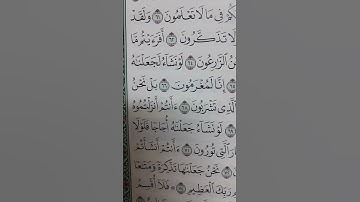 كُمْ فِي مَا لَا تَعْلَمُونَ ٦١ وَلَقَدْ
لَا تَذَكَّرُونَ ٦٢ أَفَرَءَيْتُم مَّا
نَحْنُ الزَّٰرِعُونَ ٦٤ لَوْ نَشَآءُ لَجَعَلْنَٰهُ
إِنَّا لَمُغْرَمُونَ ٦٦ بَلْ نَحْنُ
الَّذِي تَشْرَبُونَ ٦٨ ءَأَنتُمْ أَنزَلْتُمُوهُ
٦٩ لَوْ نَشَآءُ جَعَلْنَٰهُ أُجَاجًا فَلَوْلَا
الَّتِي تُورُونَ ٧١ ءَأَنتُمْ أَنشَأْتُمْ
نَحْنُ جَعَلْنَٰهَا تَذْكِرَةً وَمَتَٰعًا
رَبِّكَ الْعَظِيمِ ٧٤ فَلَآ أُقْسِمُ